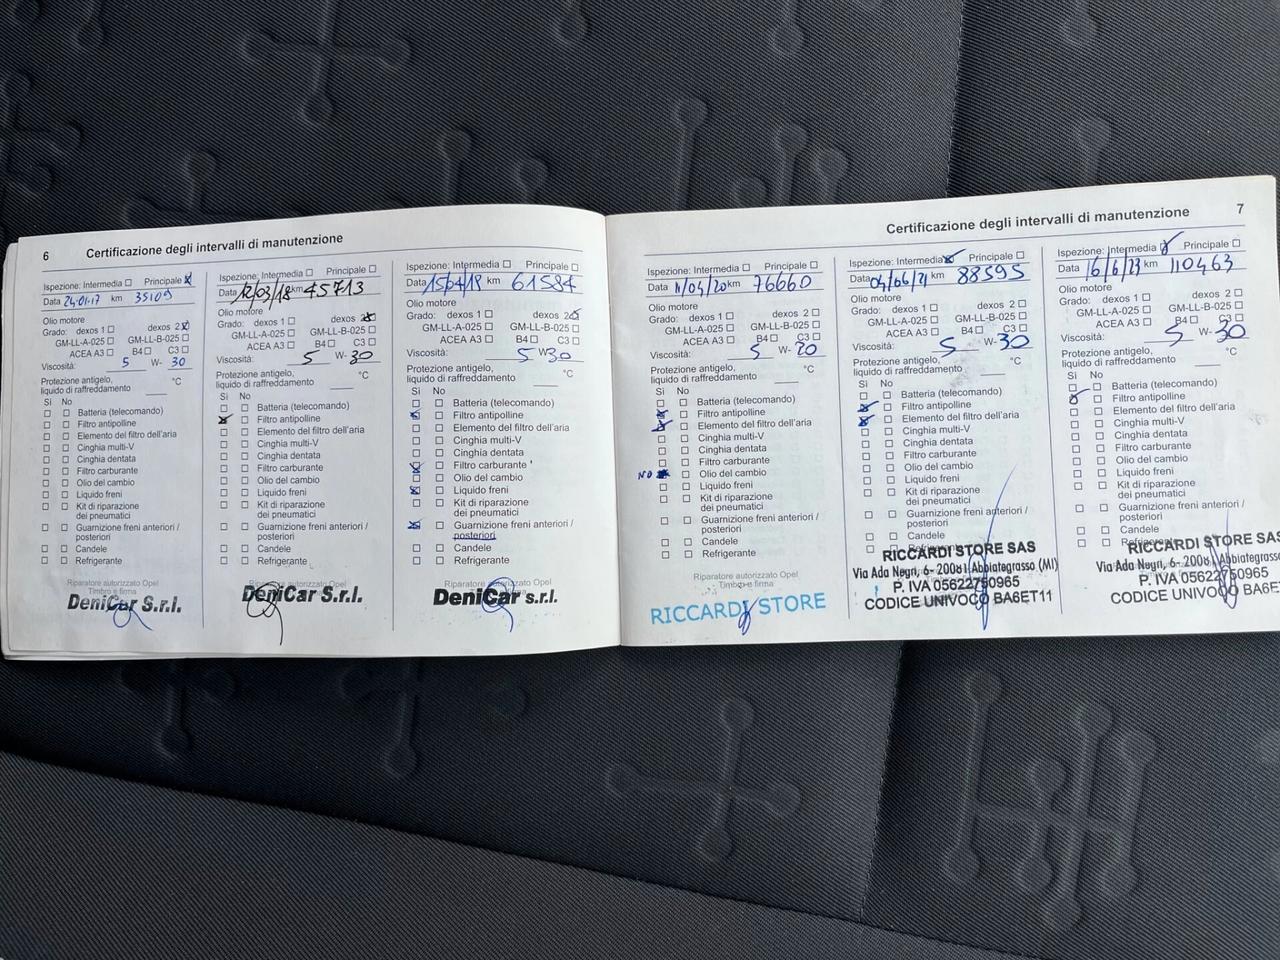 6 Certificazione degli intervalli di manutenzione
Ispezione: Intermedia Principale
Data 24.01.17 km 35109
Olio motore
Grado: dexos 1 dexos 2
GM-LL-A-025 GM-LL-B-025
ACEA A3 B4 C3
Viscosità: 5 W- 30
Protezione antigelo, °C
liquido di raffreddamento
Si No
Batteria (telecomando)
Filtro antipolline
Elemento del filtro dell'aria
Cinghia multi-V
Cinghia dentata
Filtro carburante
Olio del cambio
Liquido freni
Kit di riparazione
dei pneumatici
Guarnizione freni anteriori /
posteriori
Candele
Refrigerante
Riparatore autorizzato Opel
Timbro e firma
DeniCar S.r.l.
Ispezione: Intermedia Principale
Data 12/03/18 km 45713
Olio motore
Grado: dexos 1 dexos 2
GM-LL-A-025 GM-LL-B-025
ACEA A3 B4 C3
Viscosità: 5 W- 30
Protezione antigelo, °C
liquido di raffreddamento
Si No
Batteria (telecomando)
Filtro antipolline
Elemento del filtro dell'aria
Cinghia multi-V
Cinghia dentata
Filtro carburante
Olio del cambio
Liquido freni
Kit di riparazione
dei pneumatici
Guarnizione freni anteriori /
posteriori
Candele
Refrigerante
Riparatore autorizzato Opel
DeniCar S.r.l.
Ispezione: Intermedia Principale
Data 15/04/19 km 61584
Olio motore
Grado: dexos 1 dexos 2
GM-LL-A-025 GM-LL-B-025
ACEA A3 B4 C3
Viscosità: 5 W 30
Protezione antigelo, °C
liquido di raffreddamento
Si No
Batteria (telecomando)
Filtro antipolline
Elemento del filtro dell'aria
Cinghia multi-V
Cinghia dentata
Filtro carburante
Olio del cambio
Liquido freni
Kit di riparazione
dei pneumatici
Guarnizione freni anteriori /
posteriori
Candele
Refrigerante
Riparatore autorizzato Opel
DeniCar s.r.l.
Certificazione degli intervalli di manutenzione 7
Ispezione: Intermedia Principale
Data 11/04/20 km 76660
Olio motore
Grado: dexos 1 dexos 2
GM-LL-A-025 GM-LL-B-025
ACEA A3 B4 C3
Viscosità: 5 W- 20
Protezione antigelo, °C
liquido di raffreddamento
Si No
Batteria (telecomando)
Filtro antipolline
Elemento del filtro dell'aria
Cinghia multi-V
Cinghia dentata
Filtro carburante
NO Olio del cambio
Liquido freni
Kit di riparazione
dei pneumatici
Guarnizione freni anteriori /
posteriori
Candele
Refrigerante
Riparatore autorizzato Opel
Timbro e firma
RICCARDI STORE
Ispezione: Intermedia Principale
Data 04/06/21 km 88595
Olio motore
Grado: dexos 1 dexos 2
GM-LL-A-025 GM-LL-B-025
ACEA A3 B4 C3
Viscosità: 5 W- 30
Protezione antigelo, °C
liquido di raffreddamento
Si No
Batteria (telecomando)
Filtro antipolline
Elemento del filtro dell'aria
Cinghia multi-V
Cinghia dentata
Filtro carburante
Olio del cambio
Liquido freni
Kit di riparazione
dei pneumatici
Guarnizione freni anteriori /
posteriori
Candele
RICCARDI STORE SAS
Via Ada Negri, 6- 20081 Abbiategrasso (MI)
P. IVA 05622750965
CODICE UNIVOCO BA6ET11
Ispezione: Intermedia Principale
Data 16/6/23 km 110463
Olio motore
Grado: dexos 1 dexos 2
GM-LL-A-025 GM-LL-B-025
ACEA A3 B4 C3
Viscosità: 5 W- 30
Protezione antigelo, °C
liquido di raffreddamento
Si No
Batteria (telecomando)
Filtro antipolline
Elemento del filtro dell'aria
Cinghia multi-V
Cinghia dentata
Filtro carburante
Olio del cambio
Liquido freni
Kit di riparazione
dei pneumatici
Guarnizione freni anteriori /
posteriori
Candele
RICCARDI STORE SAS
Via Ada Negri, 6- 20081 Abbiategrasso
P. IVA 05622750965
CODICE UNIVOCO BA6E